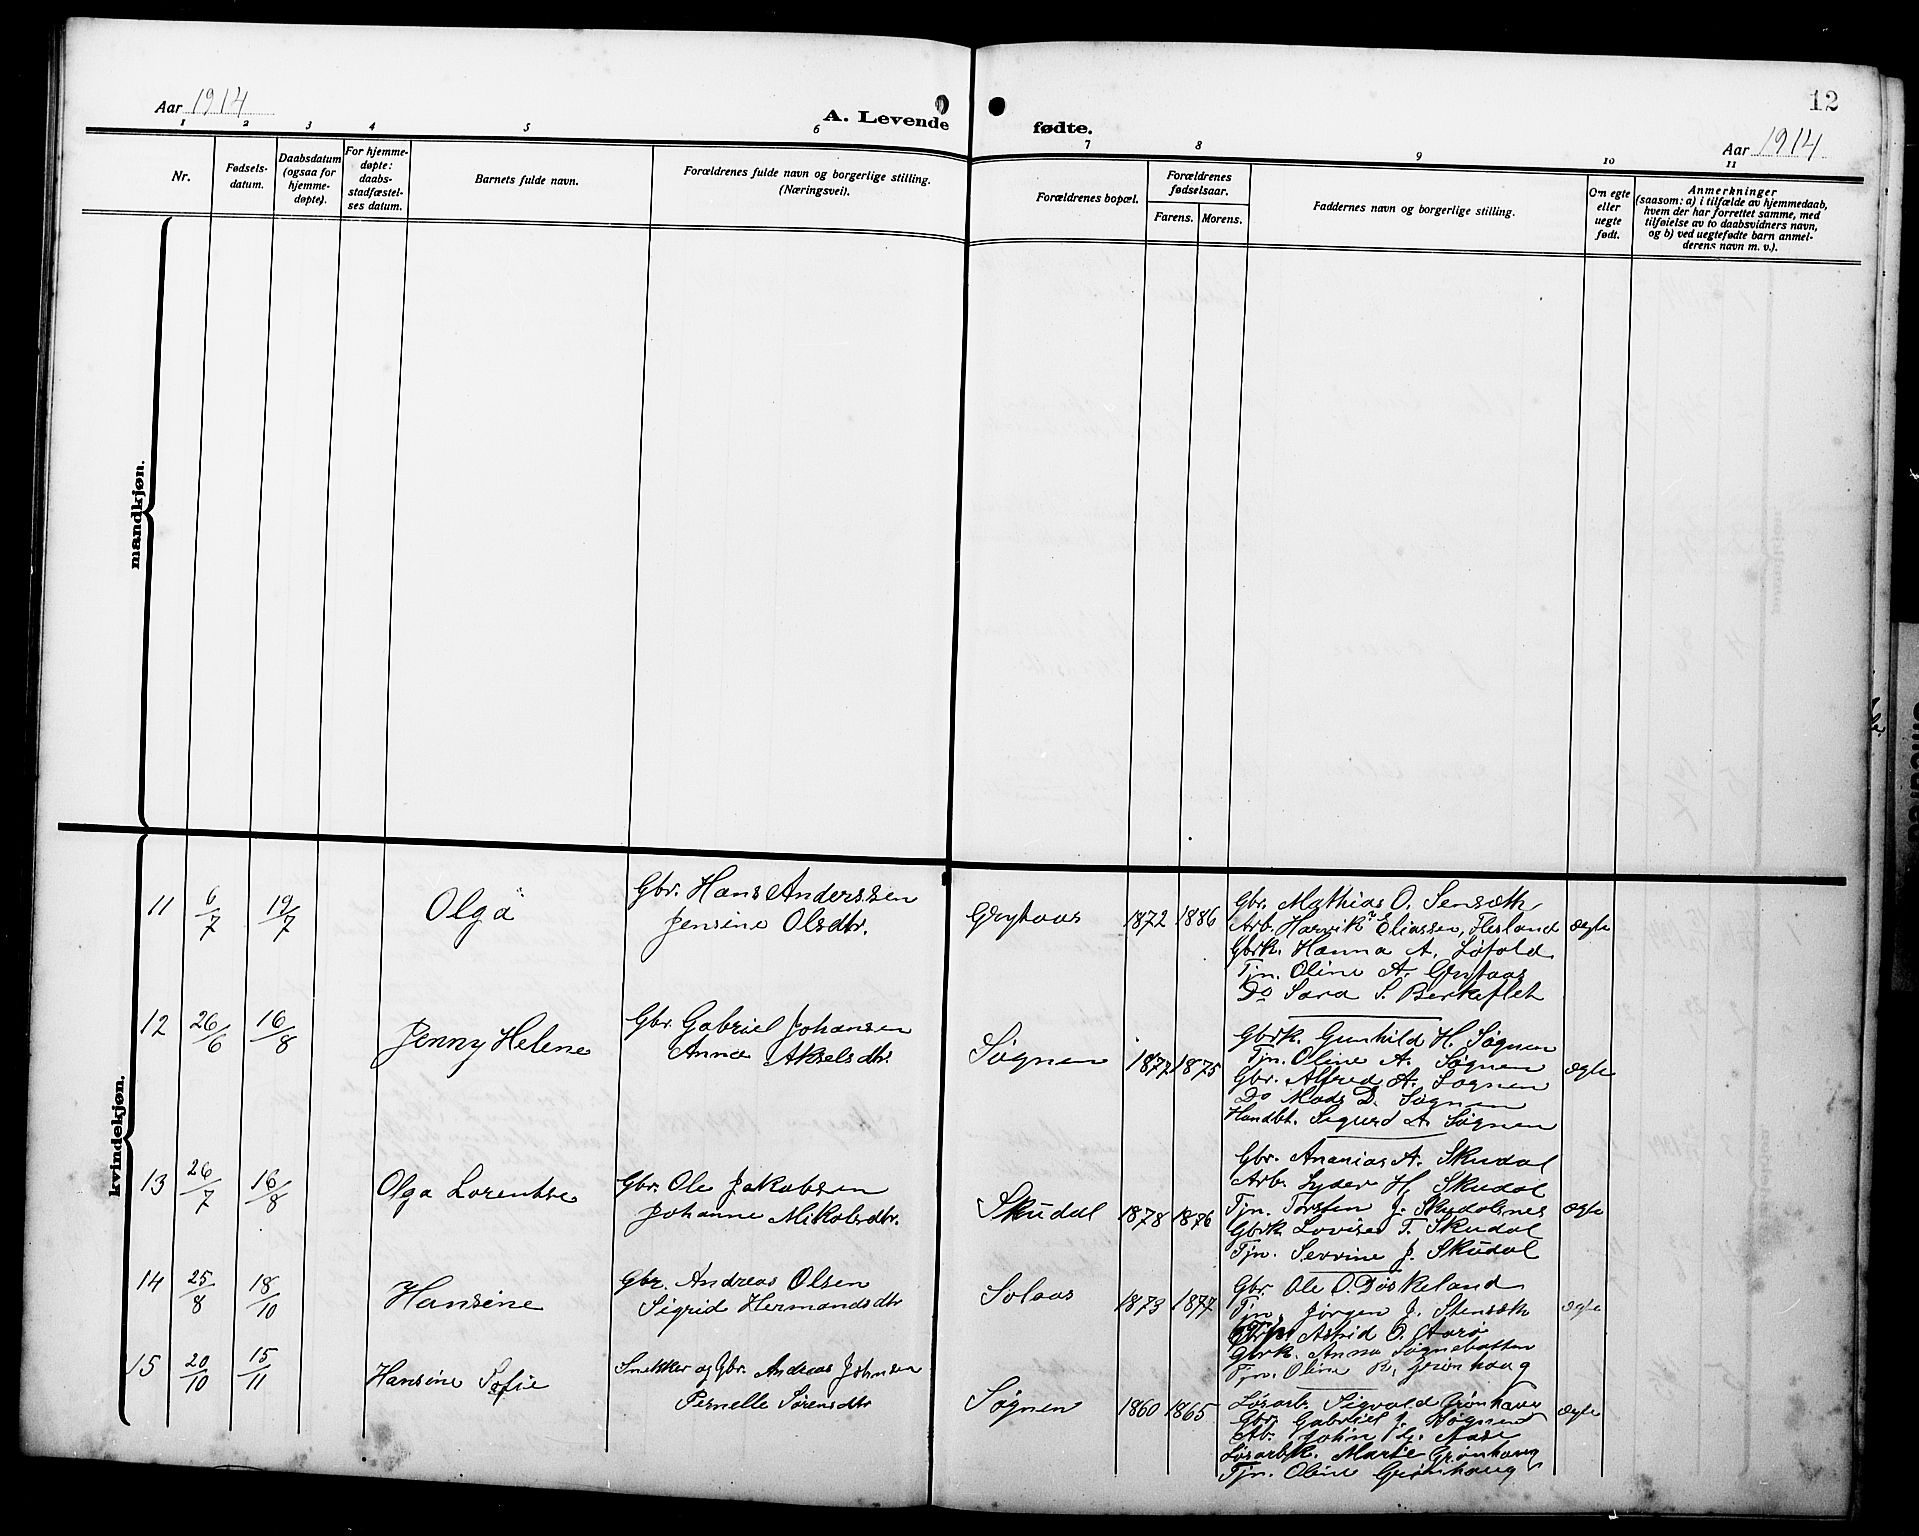 Aar 1914
A. Levende fødte.
12
Aar 1914
1 2 3 4 5 6 7 8 9 10 11
Nr.
Fødsels-
datum.
Daabsdatum
(ogsaa for
hjemme-
døpte).
For hjemme-
døpte:
daabs-
stadfæstel-
ses datum.
Barnets fulde navn.
Forældrenes fulde navn og borgerlige stilling.
(Næringsvei).
Forældrenes bopæl.
Forældrenes
fødselsaar.
Farens. Morens.
Faddernes navn og borgerlige stilling.
Om egte
eller
uegte
født.
Anmerkninger
(saasom: a) i tilfælde av hjemmedaab,
hvem der har forrettet samme, med
tilføielse av to daabsvidners navn,
og b) ved uegtefødte barn anmel-
derens navn m. v.).
mandkjøn.
kvindekjøn.
11 6/7 19/7 Olga
Gbr. Hans Anderssen
Jensine Olsdtr.
Grytaas 1872 1886
Gbr. Mathias O. Sensæth
Arb. Harvik Eliassen, Flesland
Gbrk. Hanna A. Løfold
Tjn. Oline A. Grytaas
Do Sara S. Berkeflet
ægte
12 26/6 16/8 Jenny Helene
Gbr. Gabriel Johansen
Anna Akselsdtr.
Søgnen 1877 1875
Gbrk. Gunhild H. Søgnen
Tjn. Oline A. Søgnen
Gbr. Alfred A. Søgnen
Do Mads D. Søgnen
Handbt. Sigurd A. Søgnen
ægte
13 26/7 16/8 Olga Lorentse
Gbr. Ole Jakobsen
Johanne Mikalsdtr.
Skudal 1878 1876
Gbr. Ananias A. Skudal
Arb. Lyder H. Skudal
Tjn. Torsten J. Skudalsnes
Gbrk. Lovise T. Skudal
Tjn. Sevrine J. Skudal
ægte
14 25/8 18/10 Hansine
Gbr. Andreas Olsen
Sigrid Hermandsdtr
Solaas 1873 1877
Gbr. Ole O. Døskeland
Tjn. Jørgen J. Stensæth
Tjn. Astrid O. Aarø
Gbrk. Anna Søgnebotten
Tjn. Oline R. Grønhaug
ægte
15 20/10 15/11 Hansine Sofie
Snekker og Gbr. Andreas Johnsen
Pernelle Sørensdtr
Søgnen 1860 1865
Løsarb. Sigvald Grønhaug
Gbr. Gabriel J. Søgnen
Arb. John L. Aase
Løsarbk. Marie Grønhaug
Tjn. Oline Grønhaug
ægte